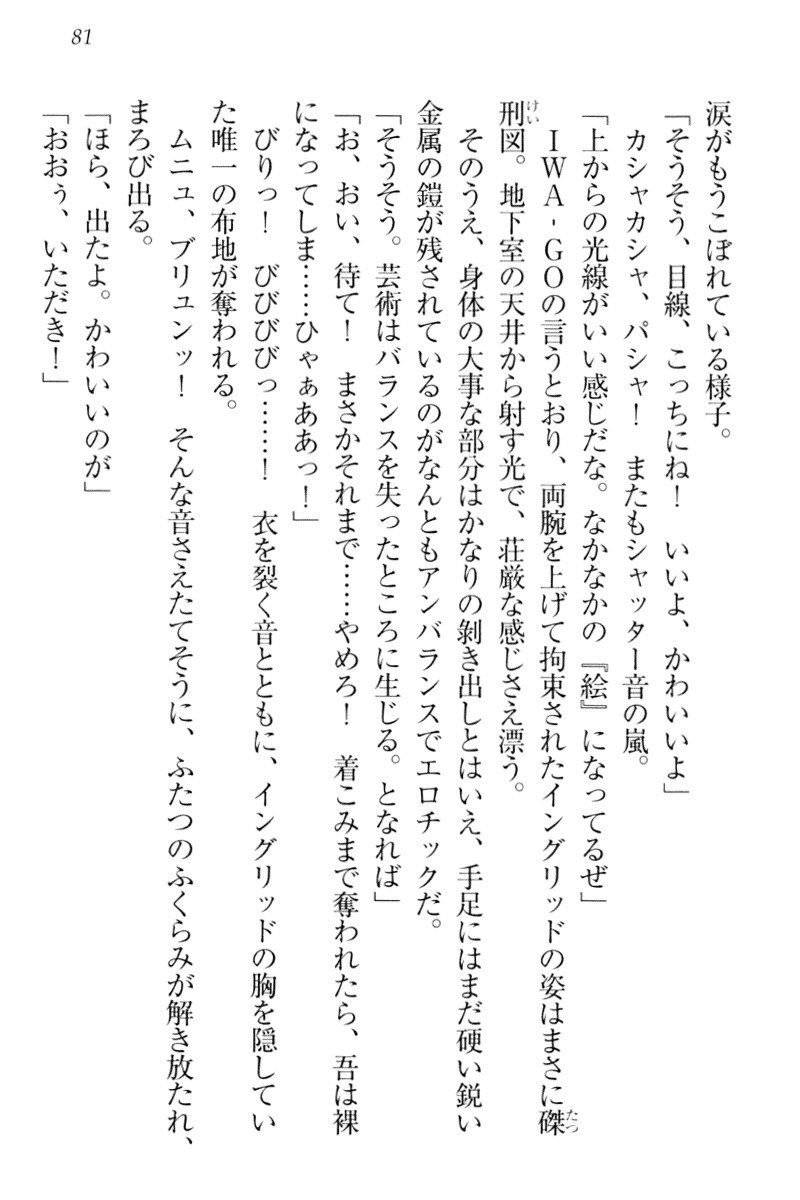 81
涙がもうこぼれている様子。
「そうそう、目線、こっちにね！　いいよ、かわいいよ」
カシャカシャ、パシャ！　またもシャッター音の嵐。
「上からの光線がいい感じだな。なかなかの『絵』になってるぜ」
ＩＷＡ-ＧＯの言うとおり、両腕を上げて拘束されたイングリッドの姿はまさに磔
刑図。地下室の天井から射す光で、荘厳な感じさえ漂う。
そのうえ、身体の大事な部分はかなりの剝き出しとはいえ、手足にはまだ硬い鋭い
金属の鎧が残されているのがなんともアンバランスでエロチックだ。
「そうそう。芸術はバランスを失ったところに生じる。となれば」
「お、おい、待て！　まさかそれまで……やめろ！　着こみまで奪われたら、吾は裸
になってしま……ひゃぁああっ！」
びりっ！　びびびびっ……！　衣を裂く音とともに、イングリッドの胸を隠してい
た唯一の布地が奪われる。
ムニュ、ブリュンッ！　そんな音さえたてそうに、ふたつのふくらみが解き放たれ、
まろび出る。
「ほら、出たよ。かわいいのが」
「おおぅ、いただき！」